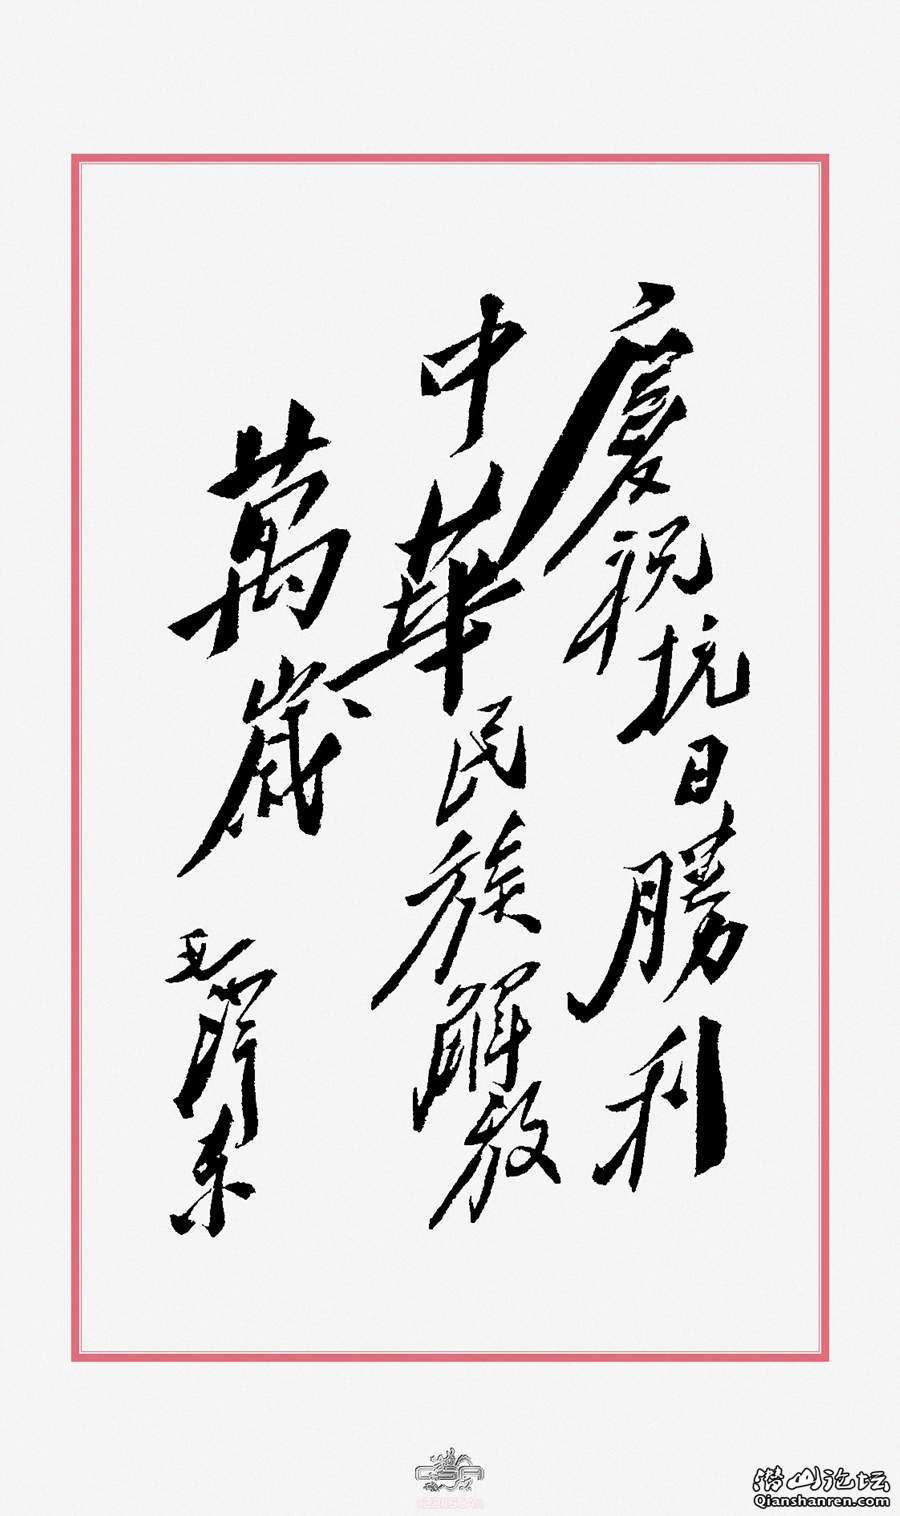 慶祝抗日勝利
中華民族解放
萬歲
毛澤东
潜山论坛
Qianshanren.com